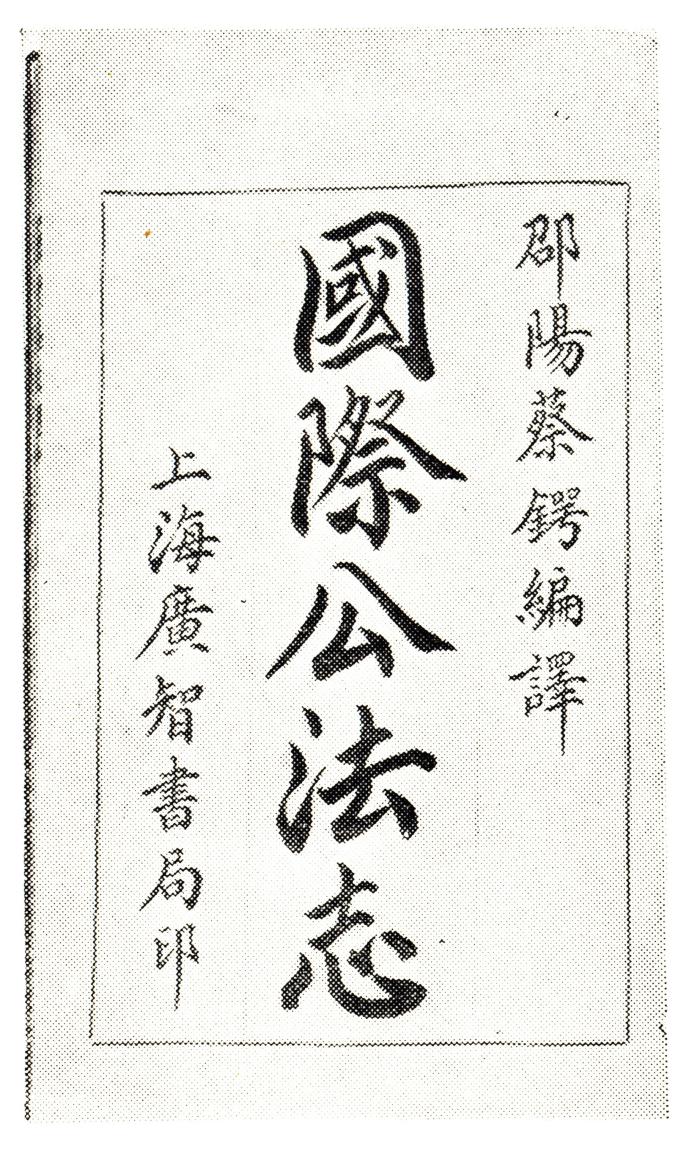 邵陽蔡鍔編譯
國際公法志
上海廣智書局印